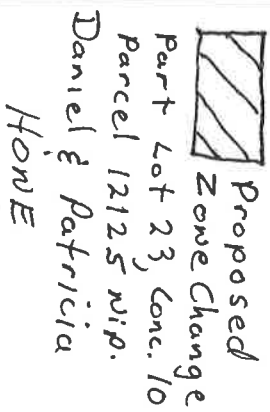 Proposed
Zone Change
Part Lot 23, Conc. 10
Parcel 12125 Nip.
Daniel & Patricia
HONE